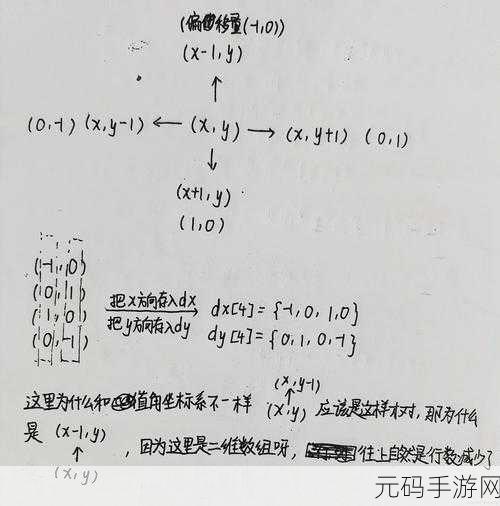 (偏移量(-1,0))
(x-1,y)
↑
(0,-1) (x,y-1) ← (x,y) → (x,y+1) (0,1)
↓
(x+1,y)
(1,0)
(-1,0)
(0,1)
(1,0)
(0,-1)
把x方向存入dx
把y方向存入dy
dx[4]={-1,0,1,0}
dy[4]={0,1,0,-1}
这里为什么和直角坐标系不一样
(x,y-1)
↑
(x,y) 应该是这样才对,那为什么
是 (x-1,y)
↑
(x,y)
,因为这里是二维数组呀,往上自然是行数减少了
元码手游网